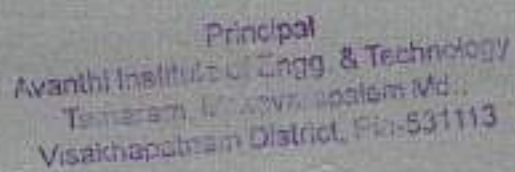 Principal
Avanthi Institute of Engg. & Technology
Tamaram, Makavarapalem Md.,
Visakhapatnam District, Pin-531113